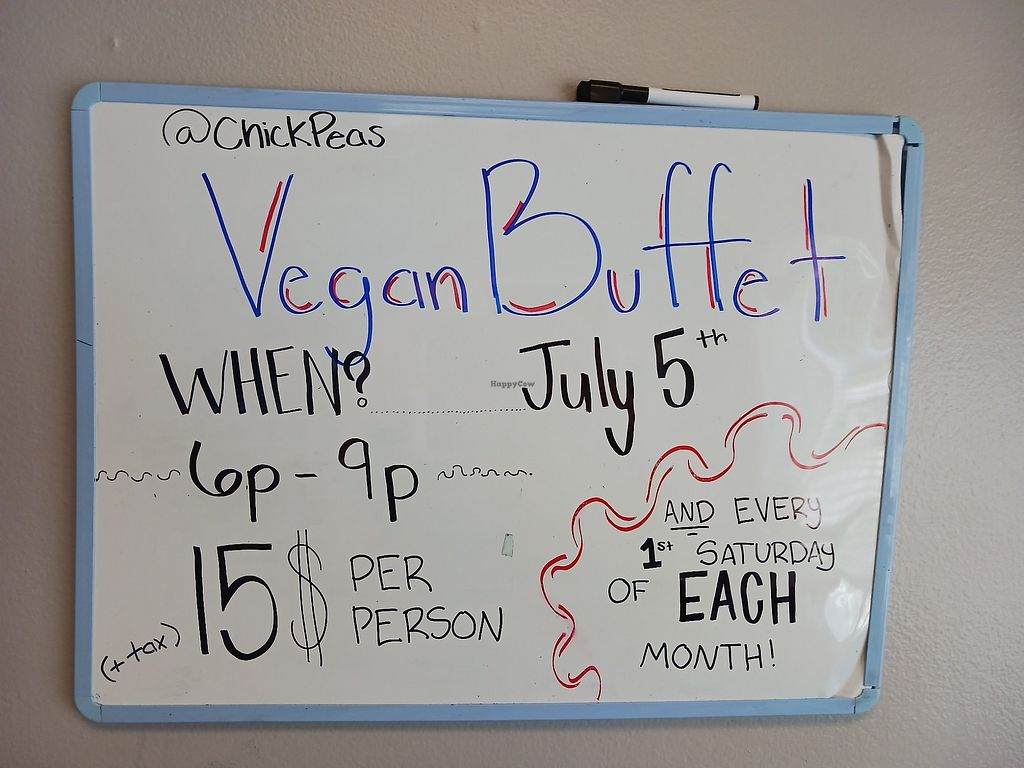 @ChickPeas
Vegan Buffet
WHEN?............July 5th
6p - 9p
15$ PER PERSON
(+ tax)
AND EVERY
1st SATURDAY
OF EACH
MONTH!
HappyCow